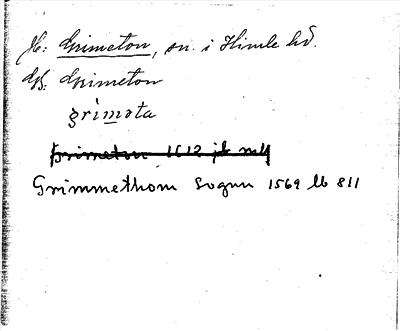 Jb: Grimeton, sn. i Himle hd.
Uβ: Grimeton
grimeta
Grimeton 1612 jb m4
Grimmethom Sognn 1569 lb 811